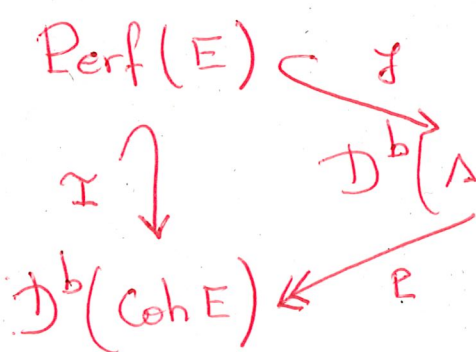 Perf(E)
J
I
D^b(Λ
D^b(Coh E)
P